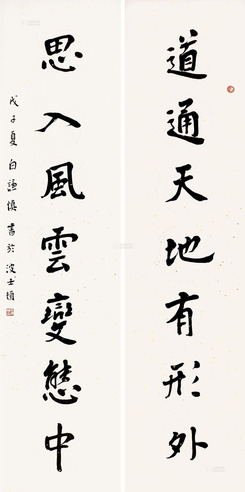 道通天地有形外
思入風雲變態中
戊子夏白謙慎書於波士頓